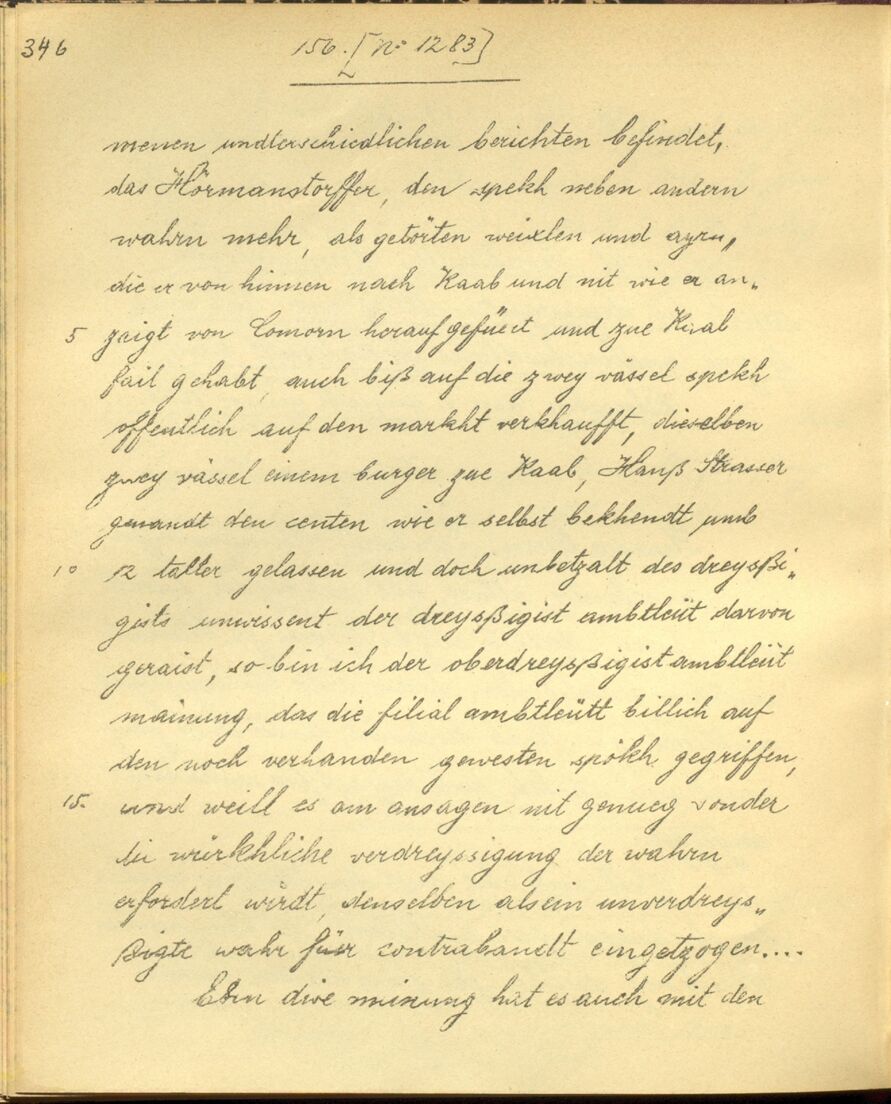 346
156. [No 1283]
menen undterschiedlichen berichten befindet,
das Hörmanstorffer, den spekh neben andern
wahrn mehr, als getörten weixlen und ayrn„
die er von hinnen nach Raab und nit wie er an„
5 zaigt von Comorn herauf gefüert und zue Raab
fail gehabt, auch biß auf die zwey vässel spekh
offentlich auf den markht verkhaufft, dieselben
zwey vässel einem burger zue Raab, Hanß Strasser
genandt den centen wie er selbst bekhendt umb
10 12 taller gelassen und doch unbetzalt des dreysßi„
gists unwissent der dreysßigist ambtleüt darvon
geraist, so bin ich der oberdreysßigistambtleüt
mainung, das die filial ambtleütt billich auf
den noch verhanden gewesten spökh gegriffen,
15. und weill es am ansagen nit genueg sonder
die würkhliche verdreyssigung der wahrn
erfordert wirdt, denselben als ein unverdreys„
sigte wahr für contrabandt eingetzogen....
Eben diese mainung hat es auch mit den